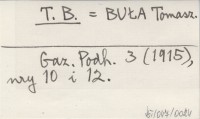 T. B. = BUŁA Tomasz.
Gaz. Podh. 3 (1915),
nry 10 i 12.